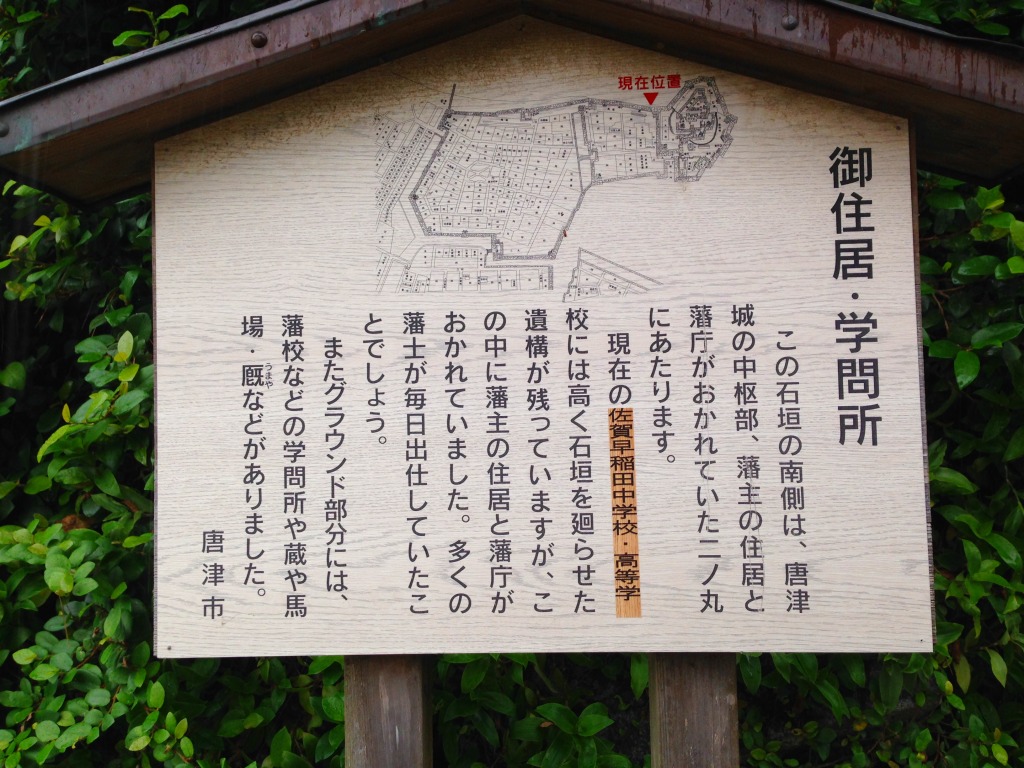 御住居・学問所
この石垣の南側は、唐津
城の中枢部、藩主の住居と
藩庁がおかれていた二ノ丸
にあたります。
現在の佐賀早稲田中学校・高等学
校には高く石垣を廻らせた
遺構が残っていますが、こ
の中に藩主の住居と藩庁が
おかれていました。多くの
藩士が毎日出仕していたこ
とでしょう。
またグラウンド部分には、
藩校などの学問所や蔵や馬
場・厩などがありました。
うまや
唐津市
現在位置